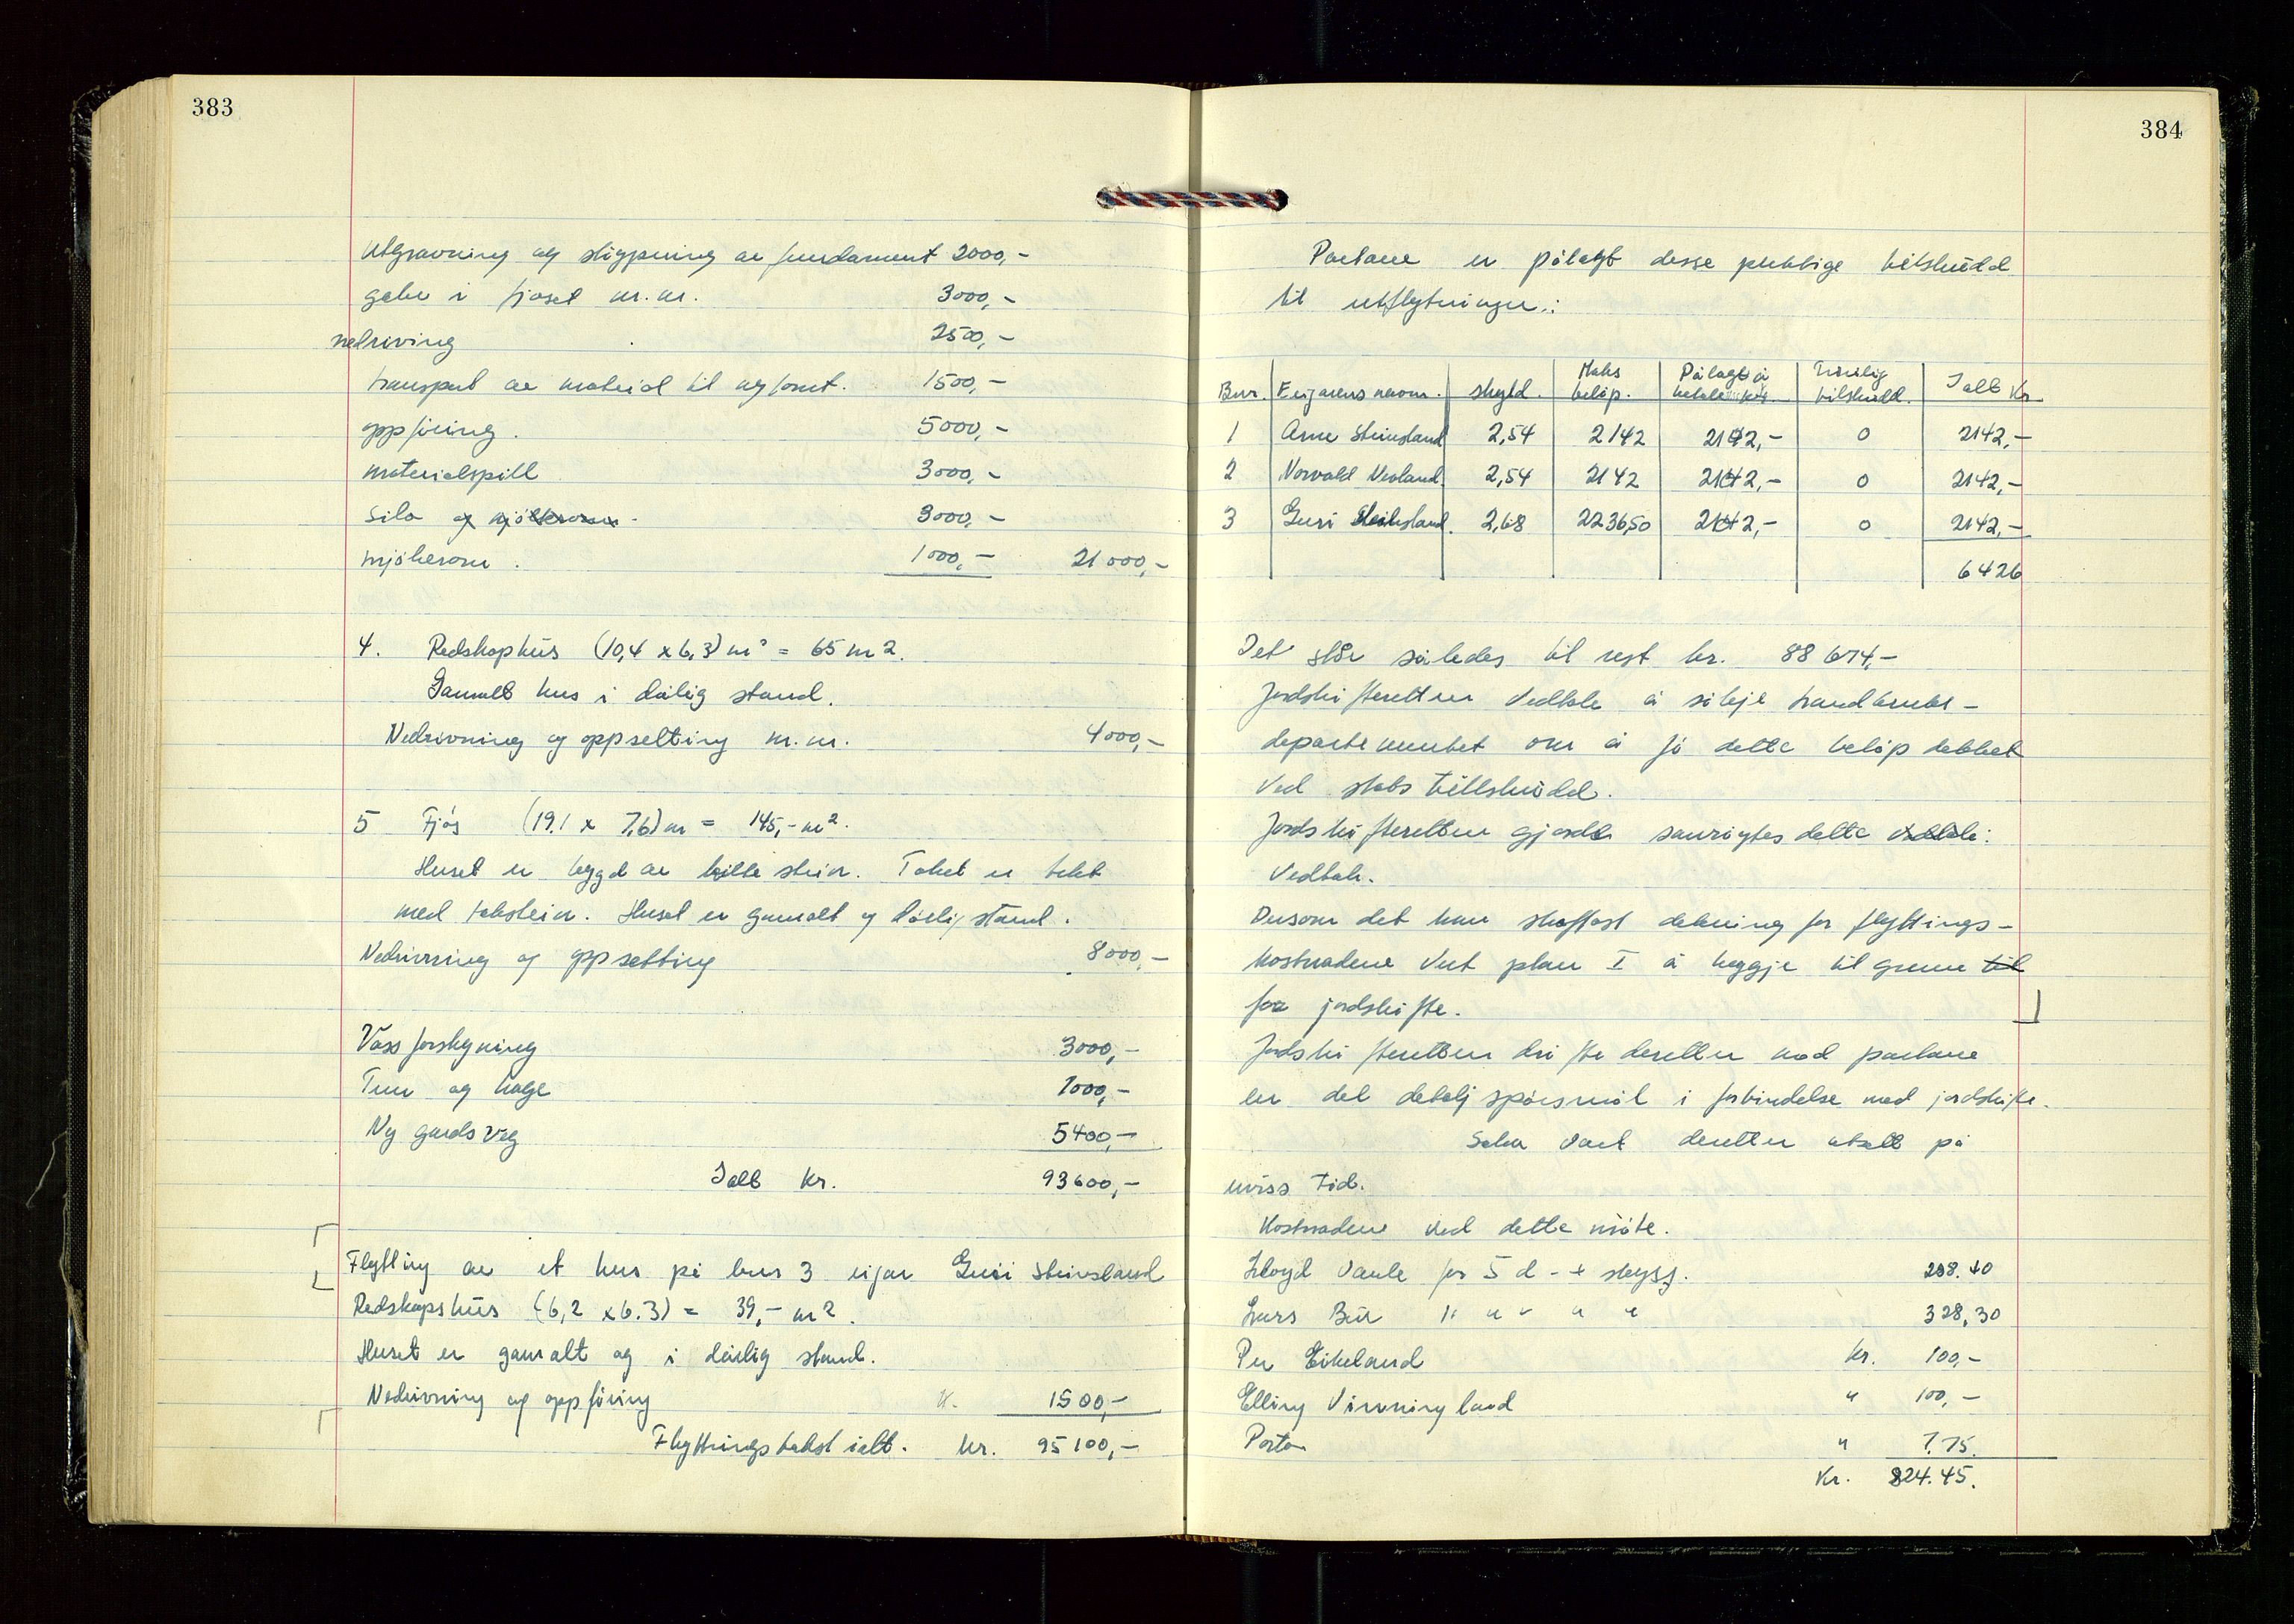 383
Utgravning og støypning av fundament 2000,-
golv i fjøset m.m. 3000,-
nedriving 2500,-
transport av material til ny tomt. 1500,-
oppføring. 5000,-
materialspill 3000,-
Silo og mjølkerom. 3000,-
mjølkerom. 1000,- 21000,-
4. Redskaphus (10,4 x 6,3) m² = 65 m2.
Gamalt hus i dårlig stand.
Nedrivning og oppsetting m.m. 4000,-
5 Fjøs (19,1 x 7,6) m = 145,- m².
Huset er bygd av kilte stein. Taket er tekt
med takstein. Huset er gamalt og dårlig stand.
Nedrivning og oppsetting 8000,-
Vassforsyning 3000,-
Tun og hage 1000,-
Ny gards veg 5400,-
Ialt kr. 93600,-
Flytting av et hus på bnr 3 eigar Guri Steinsland
Redskapshus (6,2 x 6.3) = 39,- m2.
Huset er gamalt og i dårlig stand.
Nedrivning og oppføring K. 1500,-
Flyttningstakst ialt. kr. 95100,-
384
Partane er pålagt desse pliktige tilskudd
til utflytningen.:
Bnr. Eigarens navn. skyld. Maks beløp. Pålagt å betale kr. Frivillig tilskudd. Ialt Kr.
1 Arne Steinsland 2,54 2142 2142,- 0 2142,-
2 Norvald Veoland. 2,54 2142 2142,- 0 2142,-
3 Guri Steinsland. 2,68 2236,50 2142,- 0 2142,-
6426
Det står således til rest kr. 88674,-
Jordskifteretten vedtok å søkje Landbruks-
departementet om å få dette beløp dekket
ved stats tillskudd.
Jordskifteretten gjorde samrøytes dette vedtak:
Vedtak.
Dersom det kan skaffast dekning for flyttings-
kostnadene vert plan I å leggje til grunn til
for jordskifte.
Jordskifteretten drøfte deretter med partane
en del detaljspørsmål i forbindelse med jordskifte.
Saka vart deretter utsett på
uviss tid.
Kostnadene ved dette møte.
Lloyd Vaule for 5 d - + skyss. 288.40
Lars Bue " " " " " 328,30
Per Eikeland Kr. 100,-
Elling Vinningland " 100,-
Porto " 7.75.
Kr. 824.45.